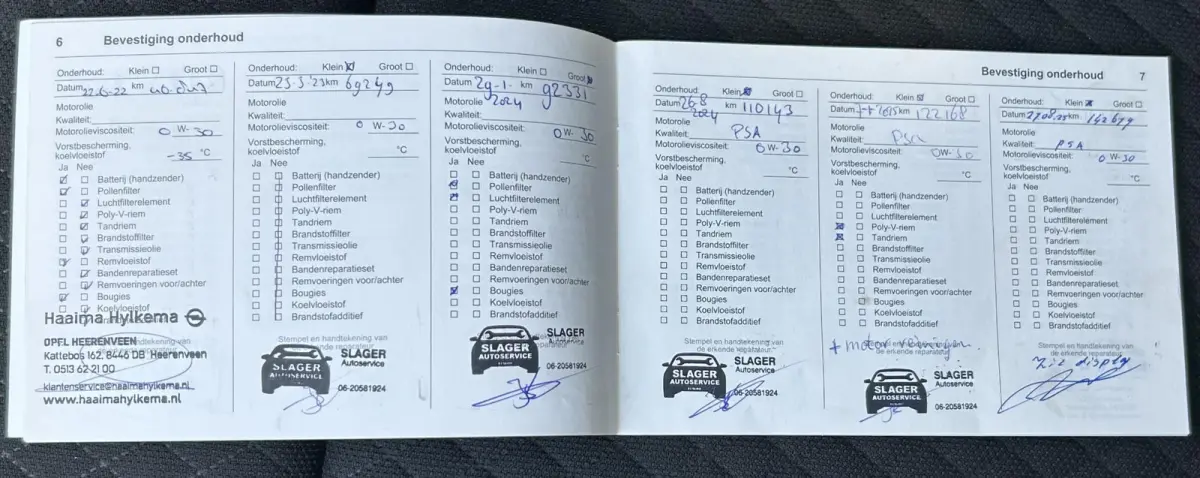 6 Bevestiging onderhoud
Onderhoud: Klein Groot
Datum 22-6-22 km
Motorolie
Kwaliteit:
Motorolieviscositeit: 0 W-30
Vorstbescherming,
koelvloeistof -35 °C
Ja Nee
Batterij (handzender)
Pollenfilter
Luchtfilterelement
Poly-V-riem
Tandriem
Brandstoffilter
Transmissieolie
Remvloeistof
Bandenreparatieset
Remvoeringen voor/achter
Bougies
Koelvloeistof
Haaima Hylkema
OPEL HEERENVEEN
Kattebos 162, 8446 DB Heerenveen
T. 0513 62 21 00
klantenservice@haaimahylkema.nl
www.haaimahylkema.nl
Onderhoud: Klein Groot
Datum 23-3-'23 km 69249
Motorolie
Kwaliteit:
Motorolieviscositeit: 0 W-30
Vorstbescherming,
koelvloeistof °C
Ja Nee
Batterij (handzender)
Pollenfilter
Luchtfilterelement
Poly-V-riem
Tandriem
Brandstoffilter
Transmissieolie
Remvloeistof
Bandenreparatieset
Remvoeringen voor/achter
Bougies
Koelvloeistof
Brandstofadditief
Stempel en handtekening van
de erkende reparateur
SLAGER
AUTOSERVICE
SLAGER
Autoservice
06-20581924
Onderhoud: Klein Groot
Datum 29-1- km 92331
2024
Motorolie
Kwaliteit:
Motorolieviscositeit: 0 W-30
Vorstbescherming,
koelvloeistof °C
Ja Nee
Batterij (handzender)
Pollenfilter
Luchtfilterelement
Poly-V-riem
Tandriem
Brandstoffilter
Transmissieolie
Remvloeistof
Bandenreparatieset
Remvoeringen voor/achter
Bougies
Koelvloeistof
Brandstofadditief
SLAGER
AUTOSERVICE
SLAGER
Autoservice
06-20581924
Bevestiging onderhoud 7
Onderhoud: Klein Groot
Datum 26-8 km 110143
2024
Motorolie
Kwaliteit: PSA
Motorolieviscositeit: 0 W-30
Vorstbescherming,
koelvloeistof °C
Ja Nee
Batterij (handzender)
Pollenfilter
Luchtfilterelement
Poly-V-riem
Tandriem
Brandstoffilter
Transmissieolie
Remvloeistof
Bandenreparatieset
Remvoeringen voor/achter
Bougies
Koelvloeistof
Brandstofadditief
Stempel en handtekening van
de erkende reparateur
SLAGER
AUTOSERVICE
SLAGER
Autoservice
06-20581924
Onderhoud: Klein Groot
Datum km 122168
Motorolie
Kwaliteit: PSA
Motorolieviscositeit: 0W-30
Vorstbescherming,
koelvloeistof °C
Ja Nee
Batterij (handzender)
Pollenfilter
Luchtfilterelement
Poly-V-riem
Tandriem
Brandstoffilter
Transmissieolie
Remvloeistof
Bandenreparatieset
Remvoeringen voor/achter
Bougies
Koelvloeistof
Brandstofadditief
Stempel en handtekening van
de erkende reparateur
+ motor reinigen.
SLAGER
AUTOSERVICE
SLAGER
Autoservice
06-20581924
Onderhoud: Klein Groot
Datum km
Motorolie
Kwaliteit: PSA
Motorolieviscositeit: 0 W-30
Vorstbescherming,
koelvloeistof °C
Ja Nee
Batterij (handzender)
Pollenfilter
Luchtfilterelement
Poly-V-riem
Tandriem
Brandstoffilter
Transmissieolie
Remvloeistof
Bandenreparatieset
Remvoeringen voor/achter
Bougies
Koelvloeistof
Brandstofadditief
Stempel en handtekening van
de erkende reparateur
Zie display